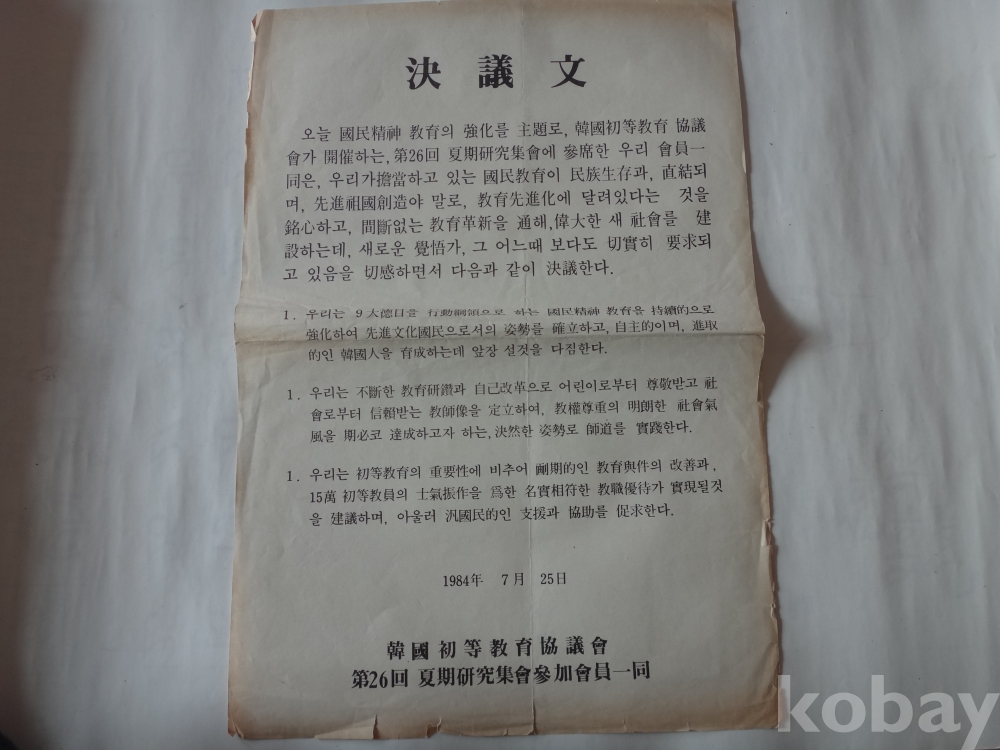 決議文
오늘 國民精神 教育의 強化를 主題로, 韓國初等教育 協議
會가 開催하는, 第26回 夏期研究集會에 參席한 우리 會員一
同은, 우리가擔當하고 있는 國民教育이 民族生存과, 直結되
며, 先進祖國創造야 말로, 教育先進化에 달려있다는 것을
銘心하고, 間斷없는 教育革新을 通해, 偉大한 새 社會를 建
設하는데, 새로운 覺悟가, 그 어느때 보다도 切實히 要求되
고 있음을 切感하면서 다음과 같이 決議한다.
1. 우리는 9大德目을 行動綱領으로 하는 國民精神 教育을 持續的으로
強化하여 先進文化國民으로서의 姿勢를 確立하고, 自主的이며, 進取
的인 韓國人을 育成하는데 앞장 설것을 다짐한다.
1. 우리는 不斷한 教育研鑽과 自己改革으로 어린이로부터 尊敬받고 社
會로부터 信賴받는 教師像을 定立하여, 教權尊重의 明朗한 社會氣
風을 期必코 達成하고자 하는, 決然한 姿勢로 師道를 實踐한다.
1. 우리는 初等教育의 重要性에 비추어 劃期的인 教育與件의 改善과,
15萬 初等教員의 士氣振作을 爲한 名實相符한 教職優待가 實現될것
을 建議하며, 아울러 汎國民的인 支援과 協助를 促求한다.
1984年 7月 25日
韓國初等教育協議會
第26回 夏期研究集會參加會員一同
kobay